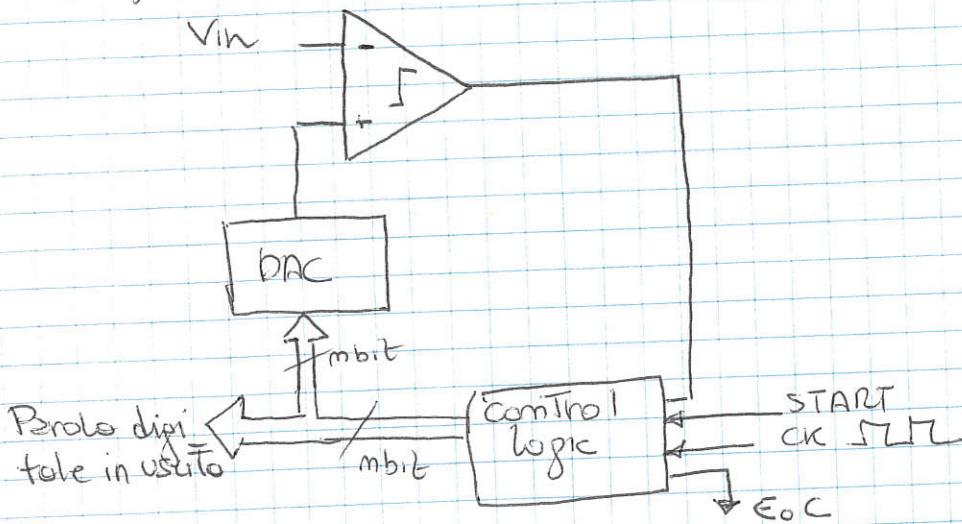 Vin
-
+
DAC
mbit
Parola digi_
tale in uscita
mbit
control
logic
START
CK
EoC